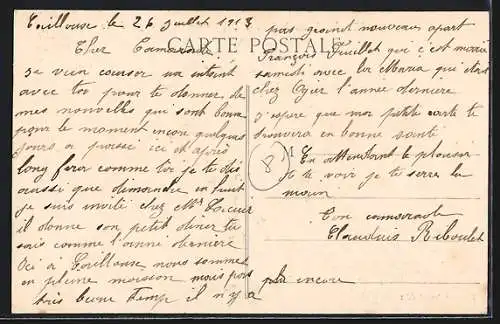 Touillouse le 26 Juillet 1913
Cher Camarade
CARTE POSTALE
Je vien causer un instent
avec toi pour te donner de
mes nouvelles qui sont bonne
pour le moment encore quelques
jours a passé ici et après
long feror comme toi je te dis
aussi que dimanche en huit
je suis invité chez Mr
il donne son petit diner tu
sais comme l'année dernière
Ici à Touillouse nous sommes
en pleine moisson mais pas
très beau temp il n'y a
pas grand nouveau apart
François Fuillet qui c'est marié
samedi avec la Maria qui étai
chez Ogier l'année dernière
J'espère que ma petite carte te
trouvera en bonne santé
M
8
En attendant le plaisir
de te voir je te serre la
main
Ton camarade
Claudius Riboulet
plus encore